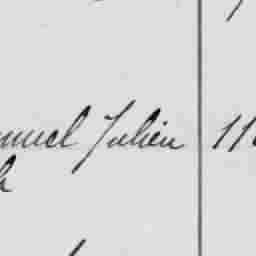 muel Julien 11